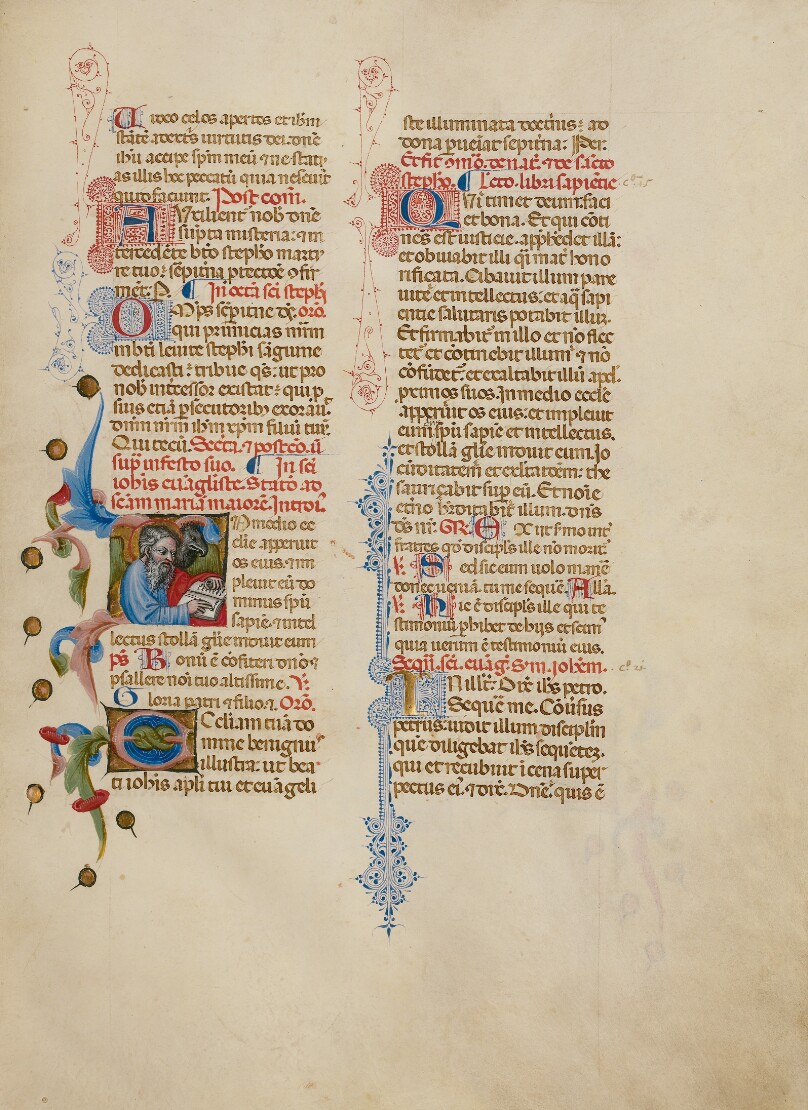 Uideo celos apertos et ihm
state adextris uirtutis dei. dne
ihu accipe spm meu ⁊ ne statu
as illis hoc peccatu quia nesciut
quid faciunt. Post com.
Auxilient nob dne
supta misteria: ⁊ in
tercedete bto stepho marty
re tuo: sepitna ptectoe ⁊fir
ment. P. In octa sci stephi
Omps sepitne ds. oro.
qui primicias mrm
in bti leuite stephi sagune
dedicasti: tribue qs: ut pro
nob intcessor existat: qui p
suis etia psecutorib exorauit
dnm nrm ihm xpm filiu tuu.
Qui tecu. Secta. ⁊ postco. ut
sup in festo suo. In sci
iohis euagliste. Statio ad
scam maria maiore. Introit.
In medio ec
clie apperuit
os eius. ⁊ im
pleuit eu do
minus spu
sapie. ⁊ intel
lectus stolla glie induit eum
ps Bonu e cofiteri dno ⁊
psallere noi tuo altissime. V.
Gloria patri ⁊ filio ⁊. Oro.
Ecclesiam tua do
mine benignus
illustra: ut bea
ti iohis apli tui et euageli
ste illuminata doctrinis: ad
dona pueiat sepitna: Per.
Et fit 9mo. de nat. ⁊ de sacto
stepho. Lcto. libri sapientie.
Qui timet deum: faci
et bona. Et qui conti
nes est iusticie. apphedet illa:
et obuiabit illi qi mat hono
rificata. Cibauit illum pane
uite et intellectus: et aq sapi
entie salutaris potabit illu.
Et firmabit in illo et no flec
tet: et cotinebit illum ⁊ no
cofudet: et exaltabit illu apd
primos suos. In medio eccle
apperuit os eius: et impleuit
eum spu sapie et intellectus.
et stolla glie induit eum. Io
cuditatem et exltatoem: the
sauricabit sup eu. Et noie
etno hditabit illum. dns
ds nr. GR. Exiit smo int
fratres qd discipls ille no morit
V. Sed sic eum uolo manere
donec ueniam. tu me sequere. Alla.
V. Hic e discipls ille qui te
stimoniu phibet de hijs et scim
quia uerum e testimoniu eius.
Sequ. sci. euag. s. m. iohem.
In illo t. Dix ihs petro.
Sequere me. Couersus
petrus: uidit illum discipulu
que diligebat ihs sequete.
qui et recubuit i cena super
pectus ei. ⁊ dix. Dne. quis e